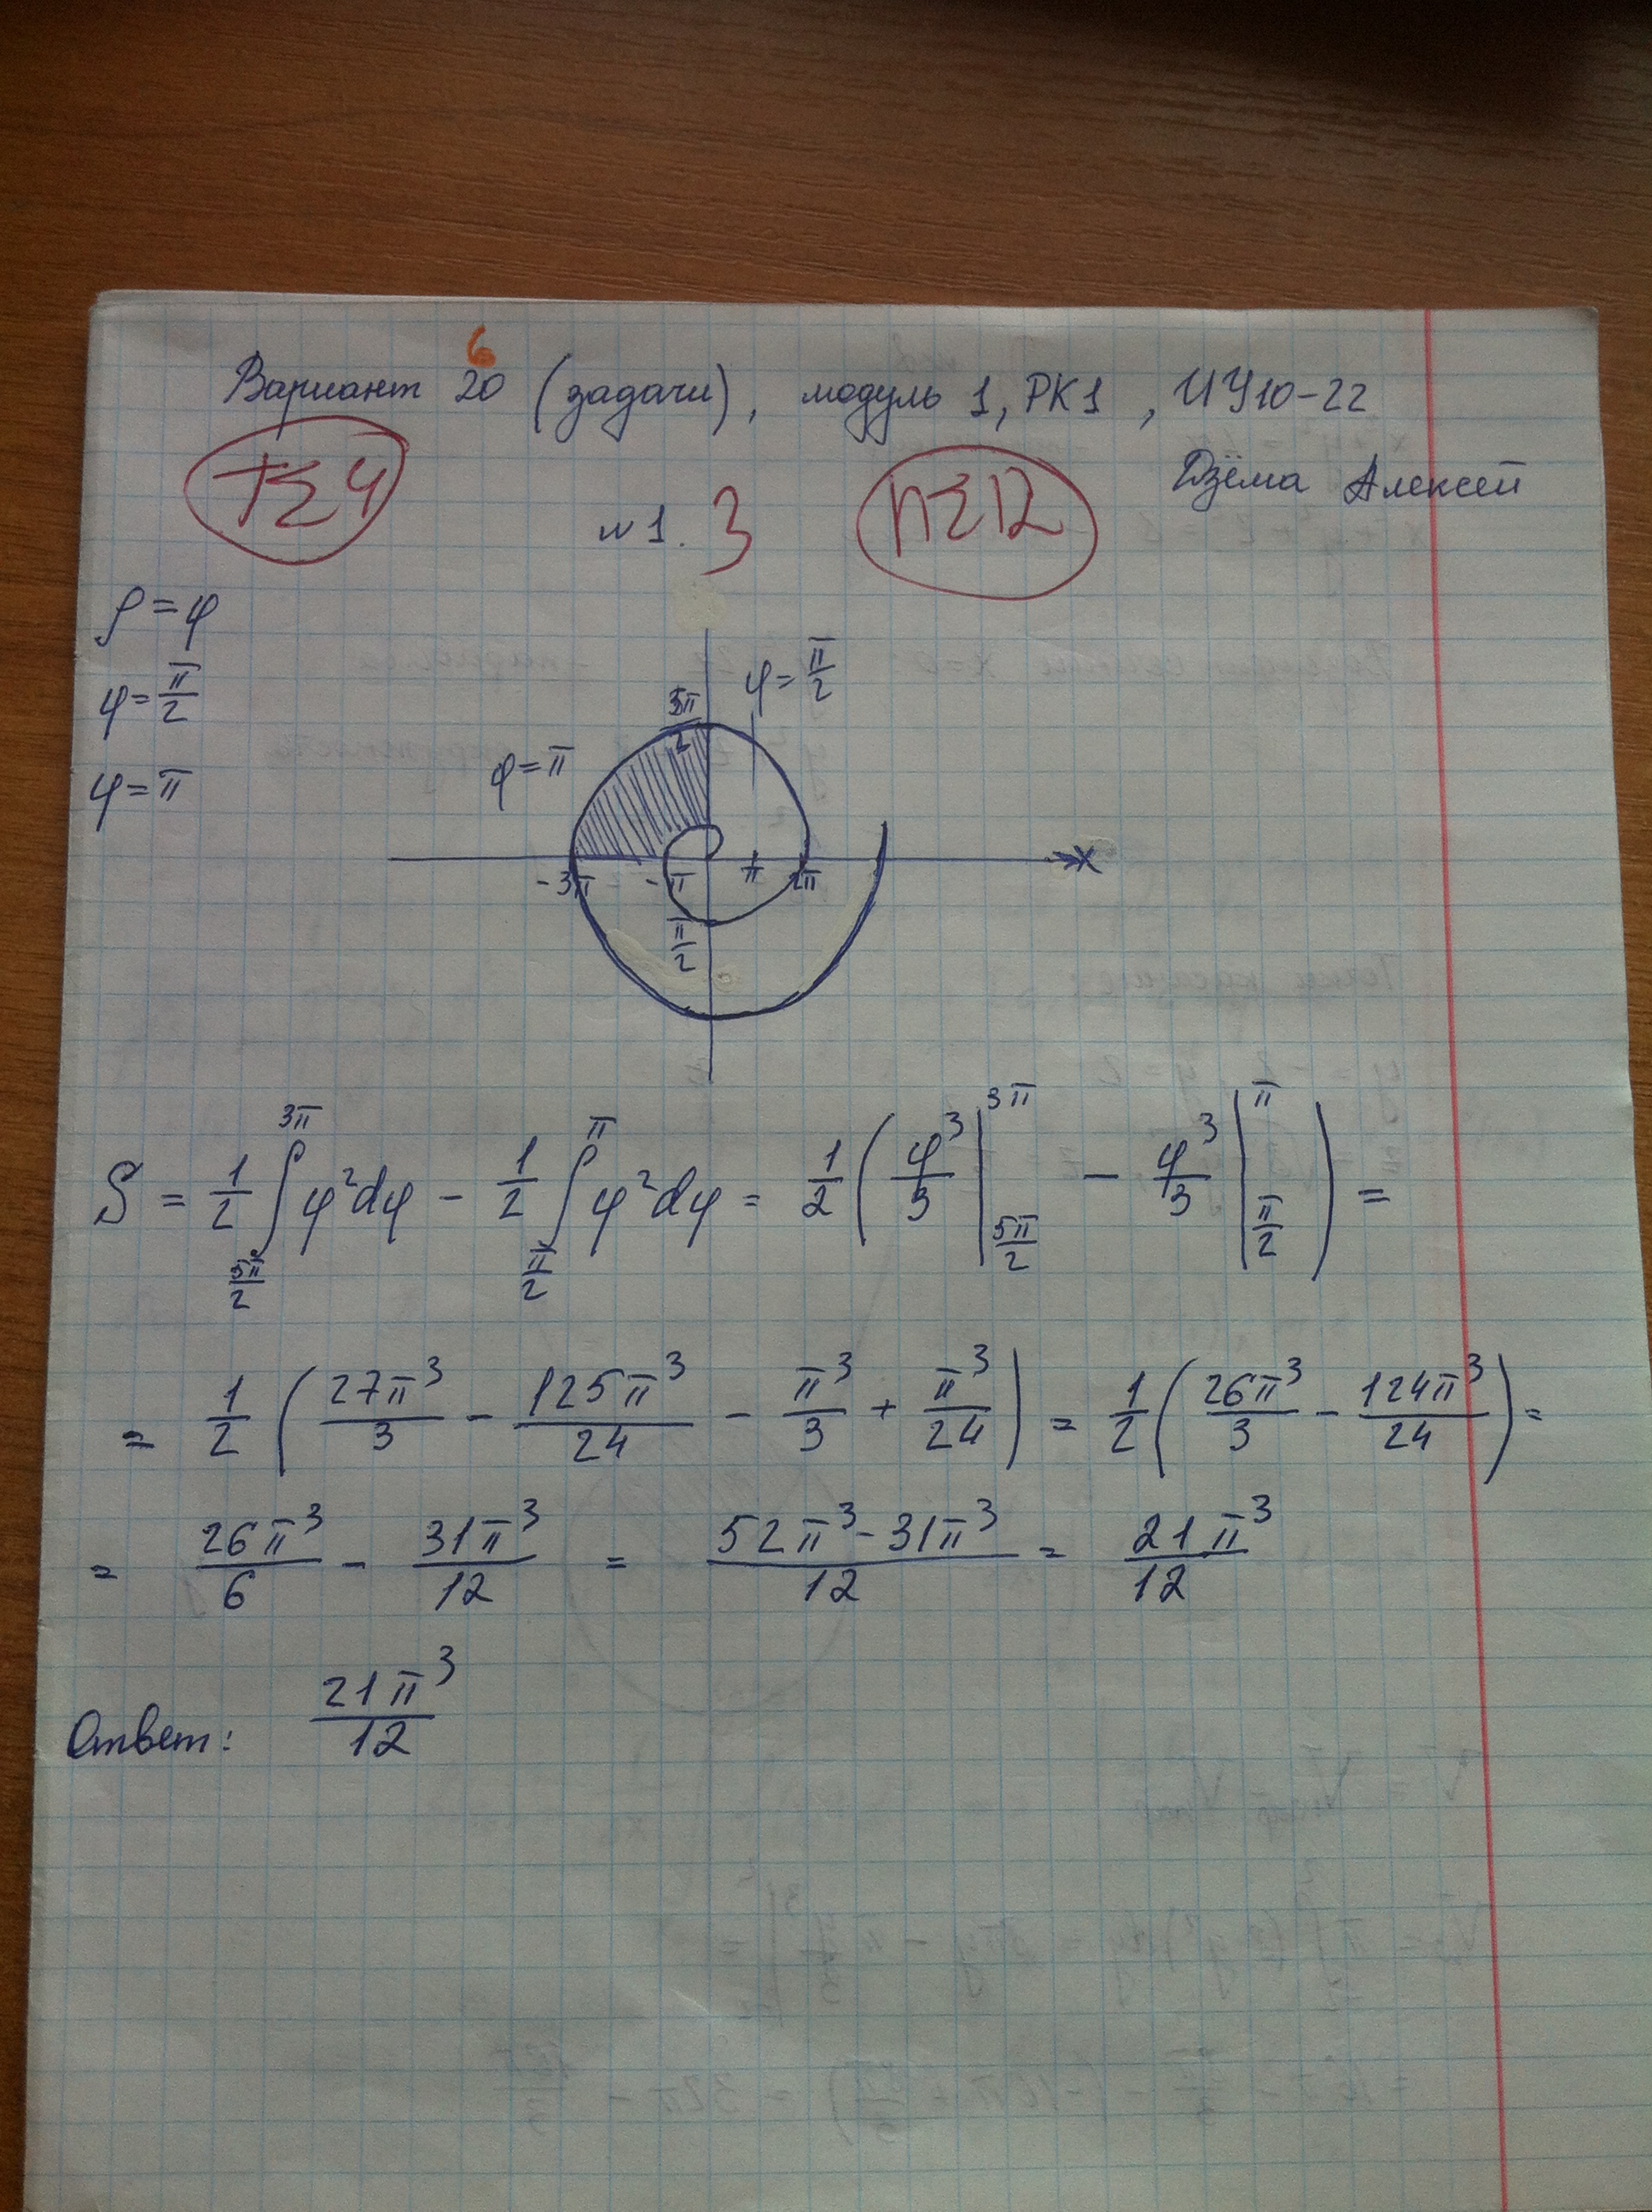 6
Вариант 20 (задачи), модуль 1, РК1, ИУ10-22
Дзёма Алексей
T∑4
№1. 3
П∑12
ρ=φ
φ=π/2
φ=π
φ=π/2
φ=π
5π/2
-3π
-π
π
2π
π/2
x
S = 1/2 ∫_{5π/2}^{3π} φ²dφ - 1/2 ∫_{π/2}^{π} φ²dφ = 1/2 (φ³/3 |_{5π/2}^{3π} - φ³/3 |_{π/2}^{π}) =
= 1/2 (27π³/3 - 125π³/24 - π³/3 + π³/24) = 1/2 (26π³/3 - 124π³/24) =
= 26π³/6 - 31π³/12 = (52π³-31π³)/12 = 21π³/12
Ответ: 21π³/12